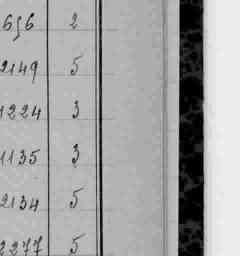 656 2
2149 5
1224 3
1135 3
2134 5
2277 5